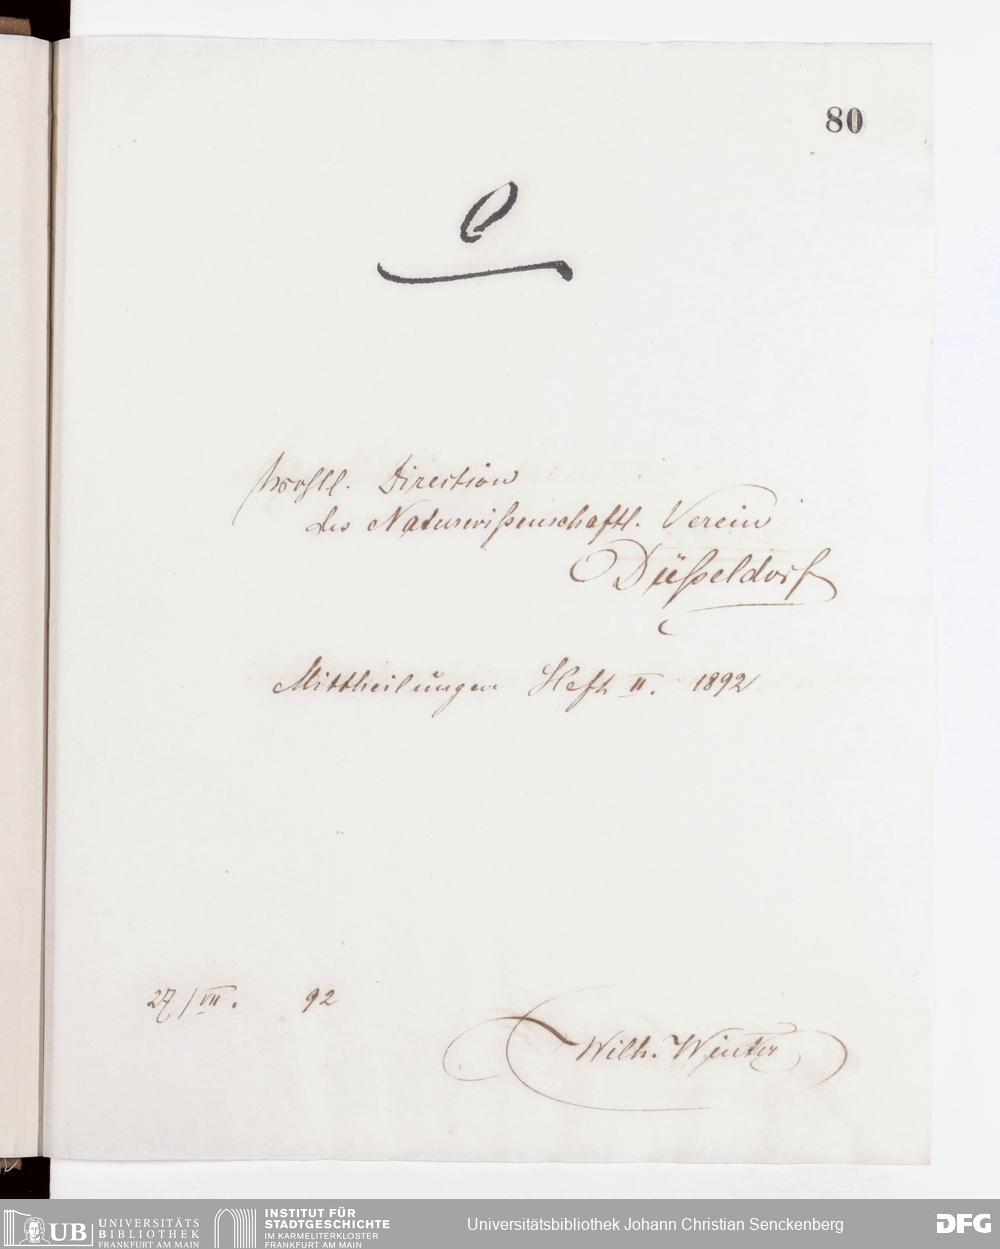 80
Wohll. Direction
des Naturwißenschaftl. Verein
Düßeldorf
Mittheilungen Heft II. 1892
27/VII. 92
Wilh. Winter
UB UNIVERSITÄTS
BIBLIOTHEK
FRANKFURT AM MAIN
INSTITUT FÜR
STADTGESCHICHTE
IM KARMELITERKLOSTER
FRANKFURT AM MAIN
Universitätsbibliothek Johann Christian Senckenberg
DFG